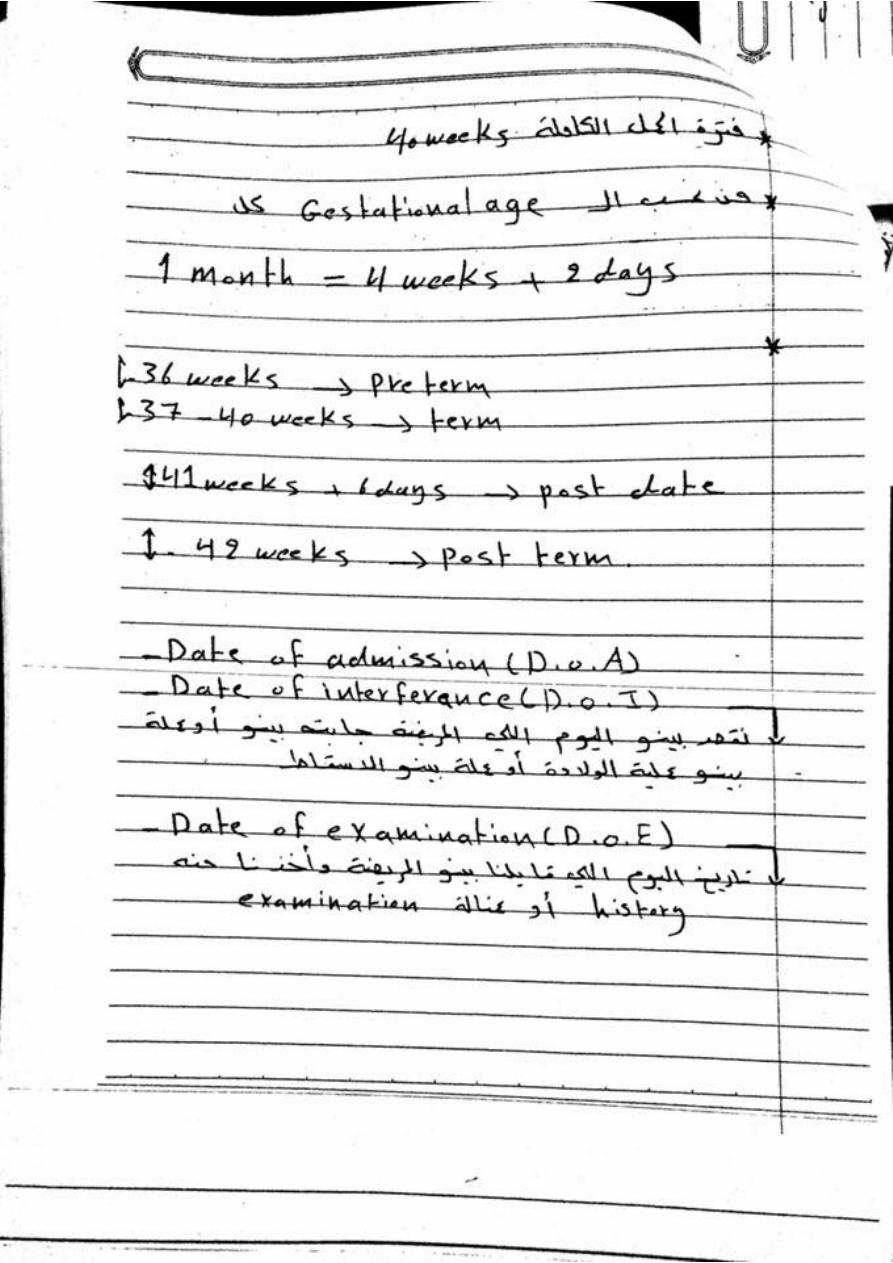 * فترة الحمل الكاملة 40 weeks
* من نحسب الـ Gestational age كل
1 month = 4 weeks + 2 days
*
36 weeks → Preterm
37 - 40 weeks → term
↕41 weeks + 6 days → post date
↕. 42 weeks → Post term.
- Date of admission (D.o.A)
- Date of interferance (D.o.I)
نقصد بيه اليوم اللي المريضة جابته بينو أو عملة
بينو عملية الولادة أو عملة بينو الاسقاط
- Date of examination (D.o.E)
تاريخ اليوم اللي قابلنا بينو المريضة وأخذنا منه
history أو عملنالة examination